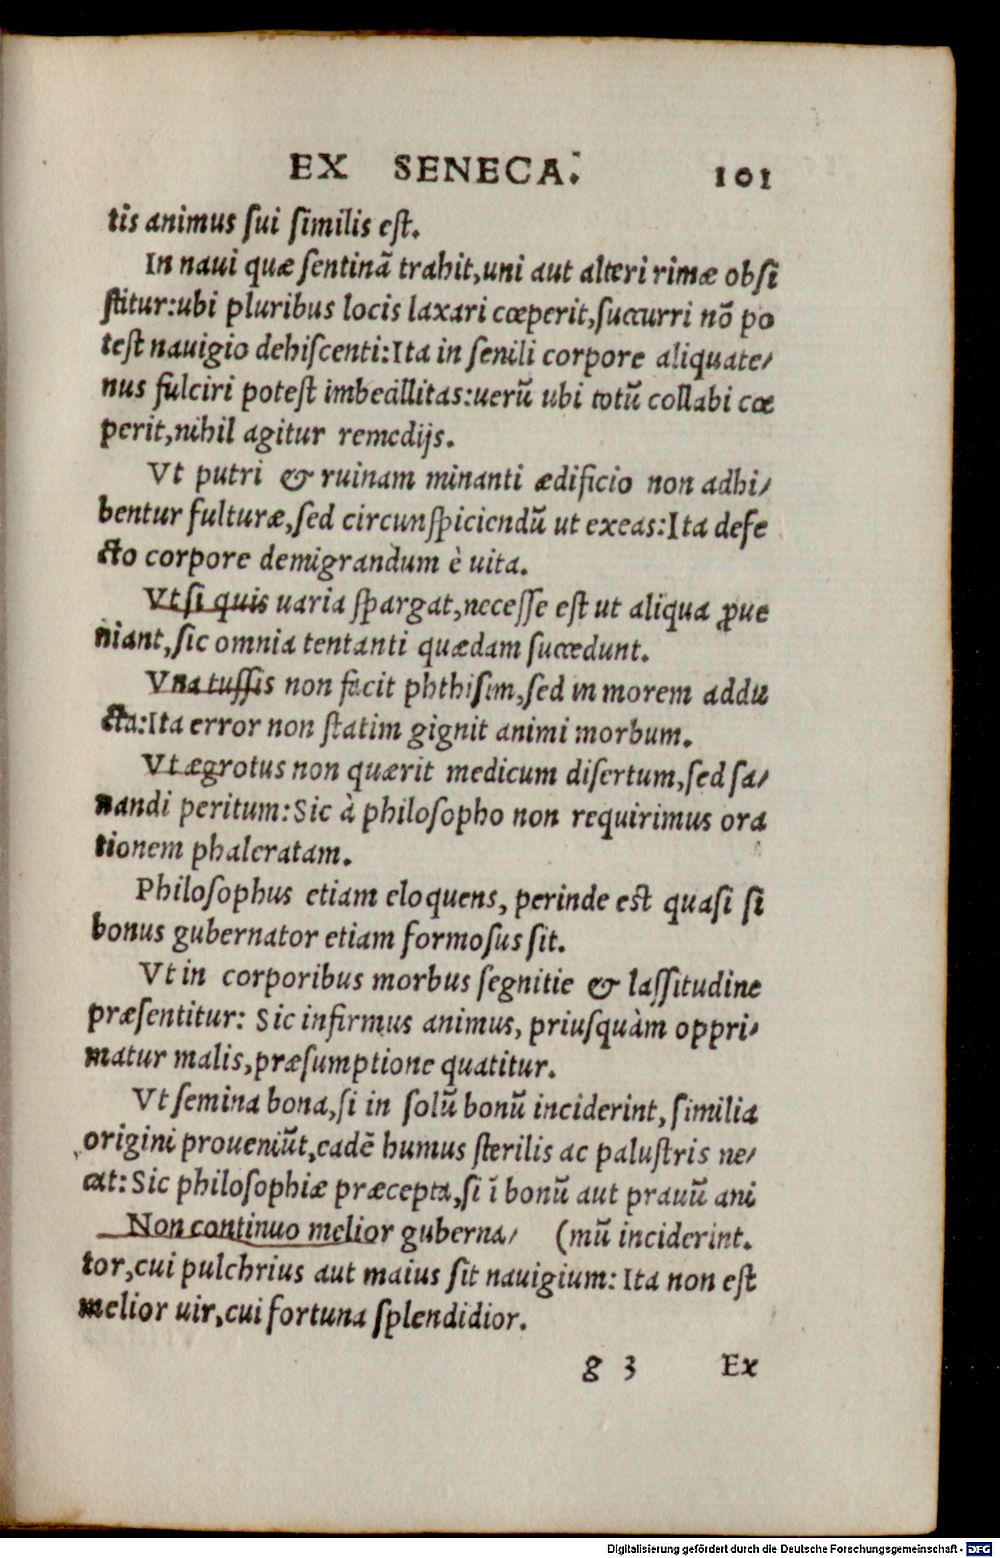 EX SENECA. 101
tis animus ſui ſimilis eſt.
In naui quæ ſentinã trahit,uni aut alteri rimæ obſi
ſtitur:ubi pluribus locis laxari cœperit,ſuccurri nõ po
teſt nauigio dehiſcenti:Ita in ſenili corpore aliquate/
nus fulciri poteſt imbecillitas:uerũ ubi totũ collabi cœ
perit,nihil agitur remedijs.
Vt putri & ruinam minanti ædificio non adhi/
bentur fulturæ,ſed circunſpiciendũ ut exeas:Ita defe
cto corpore demigrandum è uita.
Vt ſi quis uaria ſpargat,neceſſe eſt ut aliqua ꝓue
niant,ſic omnia tentanti quædam ſuccedunt.
Vna tuſſis non facit phthiſim,ſed in morem addu
cta:Ita error non ſtatim gignit animi morbum.
Vt ægrotus non quærit medicum diſertum,ſed ſa/
nandi peritum:Sic à philoſopho non requirimus ora
tionem phaleratam.
Philoſophus etiam eloquens, perinde eſt quaſi ſi
bonus gubernator etiam formoſus ſit.
Vt in corporibus morbus ſegnitie & laſſitudine
præſentitur: Sic infirmus animus, priuſquàm oppri/
matur malis,præſumptione quatitur.
Vt ſemina bona,ſi in ſolũ bonũ inciderint, ſimilia
origini proueniũt,eadẽ humus ſterilis ac paluſtris ne/
cat:Sic philoſophiæ præcepta,ſi ĩ bonũ aut prauũ ani
Non continuo melior guberna/ (mũ inciderint.
tor,cui pulchrius aut maius ſit nauigium: Ita non eſt
melior uir,cui fortuna ſplendidior.
g 3 Ex
Digitalisierung gefördert durch die Deutsche Forschungsgemeinschaft - DFG